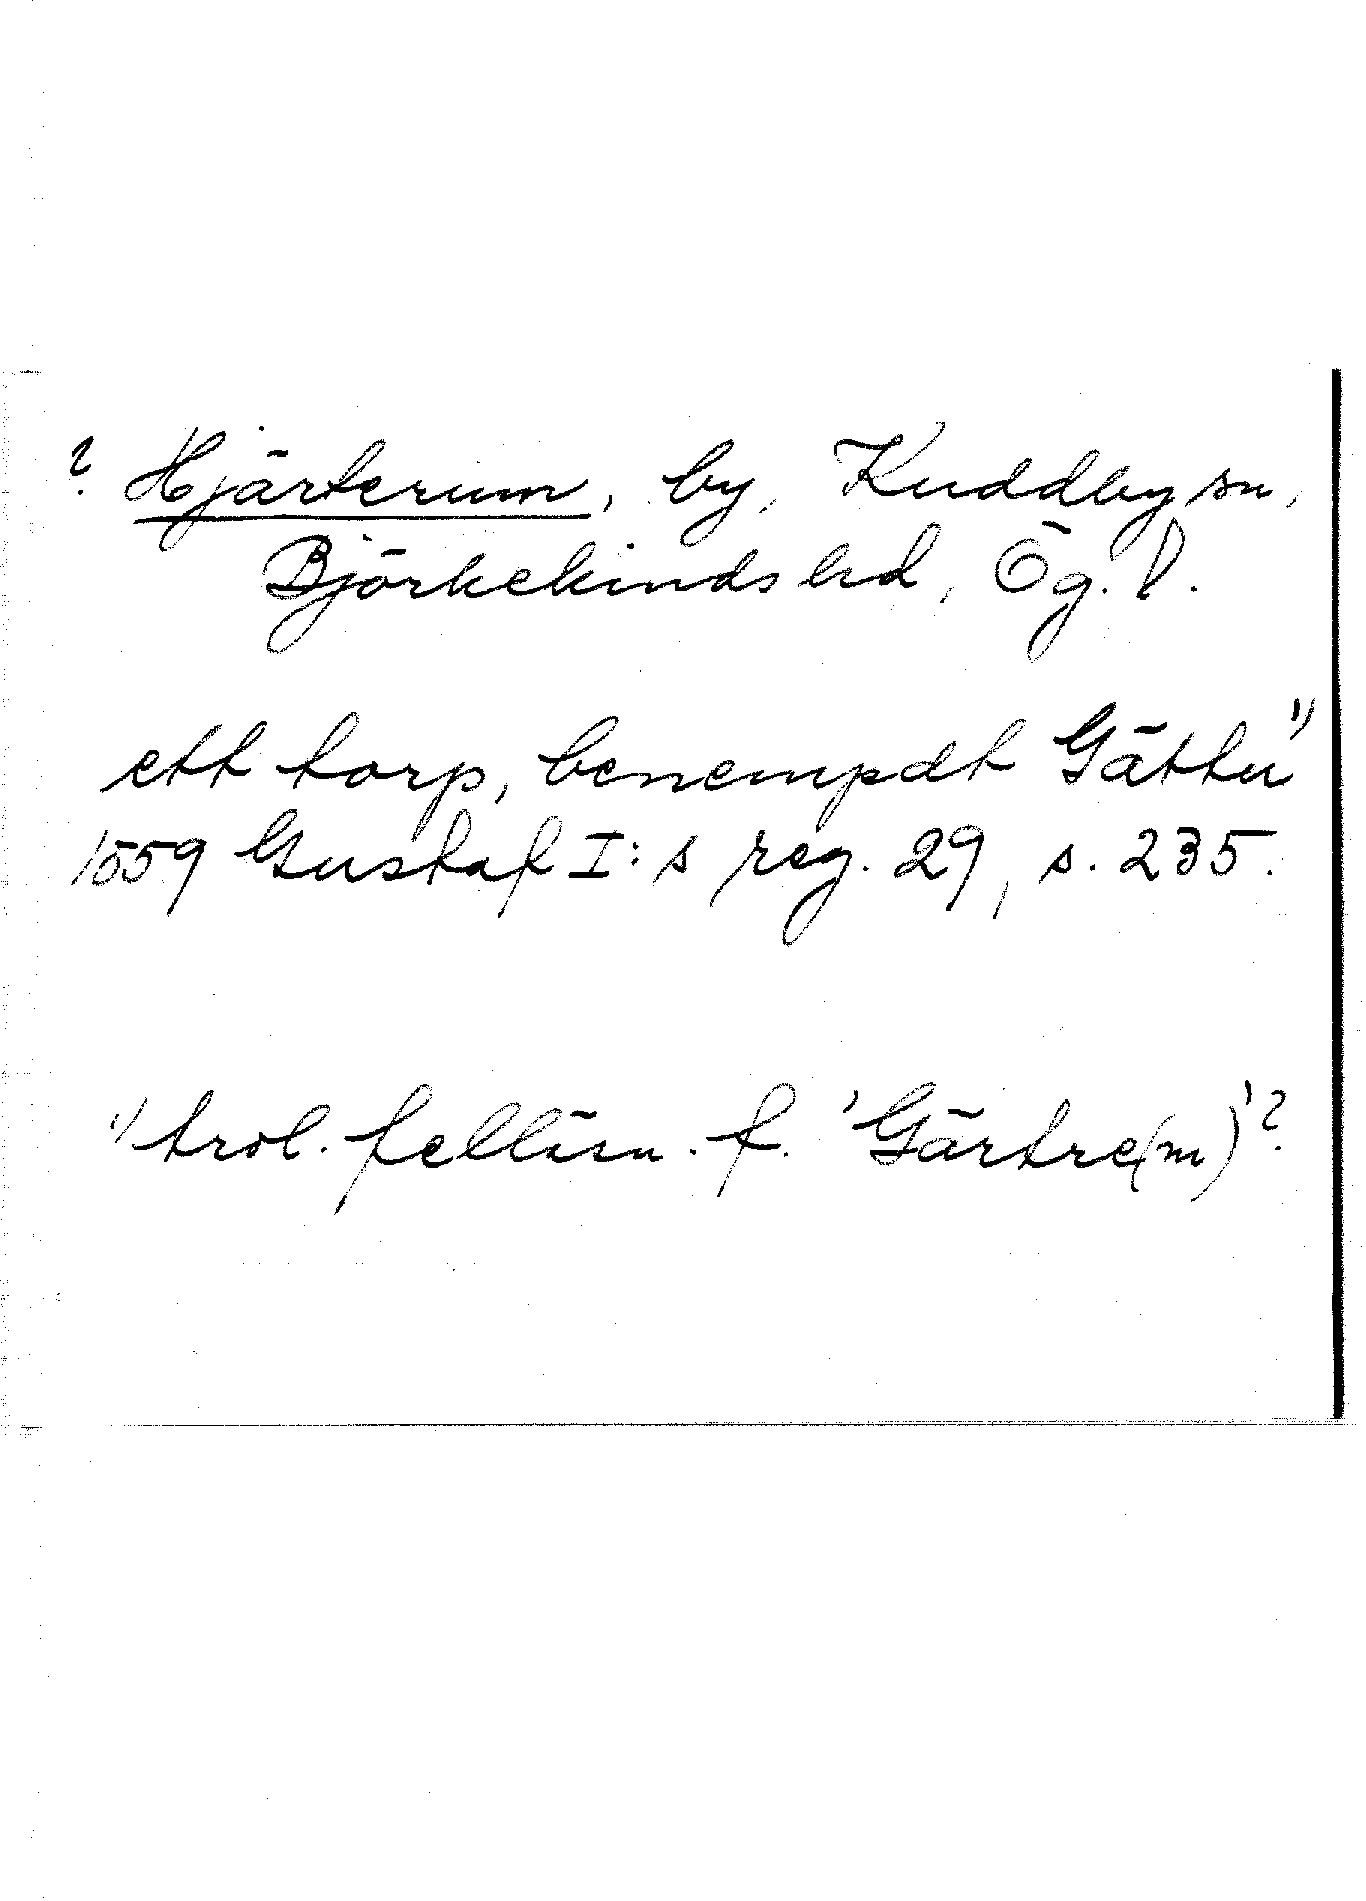 ? Hjärterum, by, Kuddby sn,
Björkekinds hd, Ög. l.
ett torp, benempdt Gättu 1)
1559 Gustaf I:s reg. 29, s. 235.
1) trol. felläsn. f. 'Gärtre(m)'?